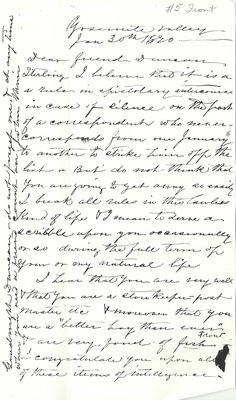 #5 Front
Yosemite Valley
Jan 30th 1890
Dear friend Duncan
Sterling I believe that it is a
a rule in epistolary intercourse
in case of silence on the part
of a correspondent who never
corresponds from one January
to another to strike him off the
list & But do not think that
you are going to get away so easily
I break all rules in this lawless
kind of life & I mean to serve a
scribble upon you occasionally
or so during the full term of
your or my natural life
I hear that you are very well
& that you are a store keeper post
master &c & moreover that you
are a "better boy than ever"
Front
are very fond of
I congratulate you upon all
of these items of intelligence.
Goodnight Duncan do not forget me